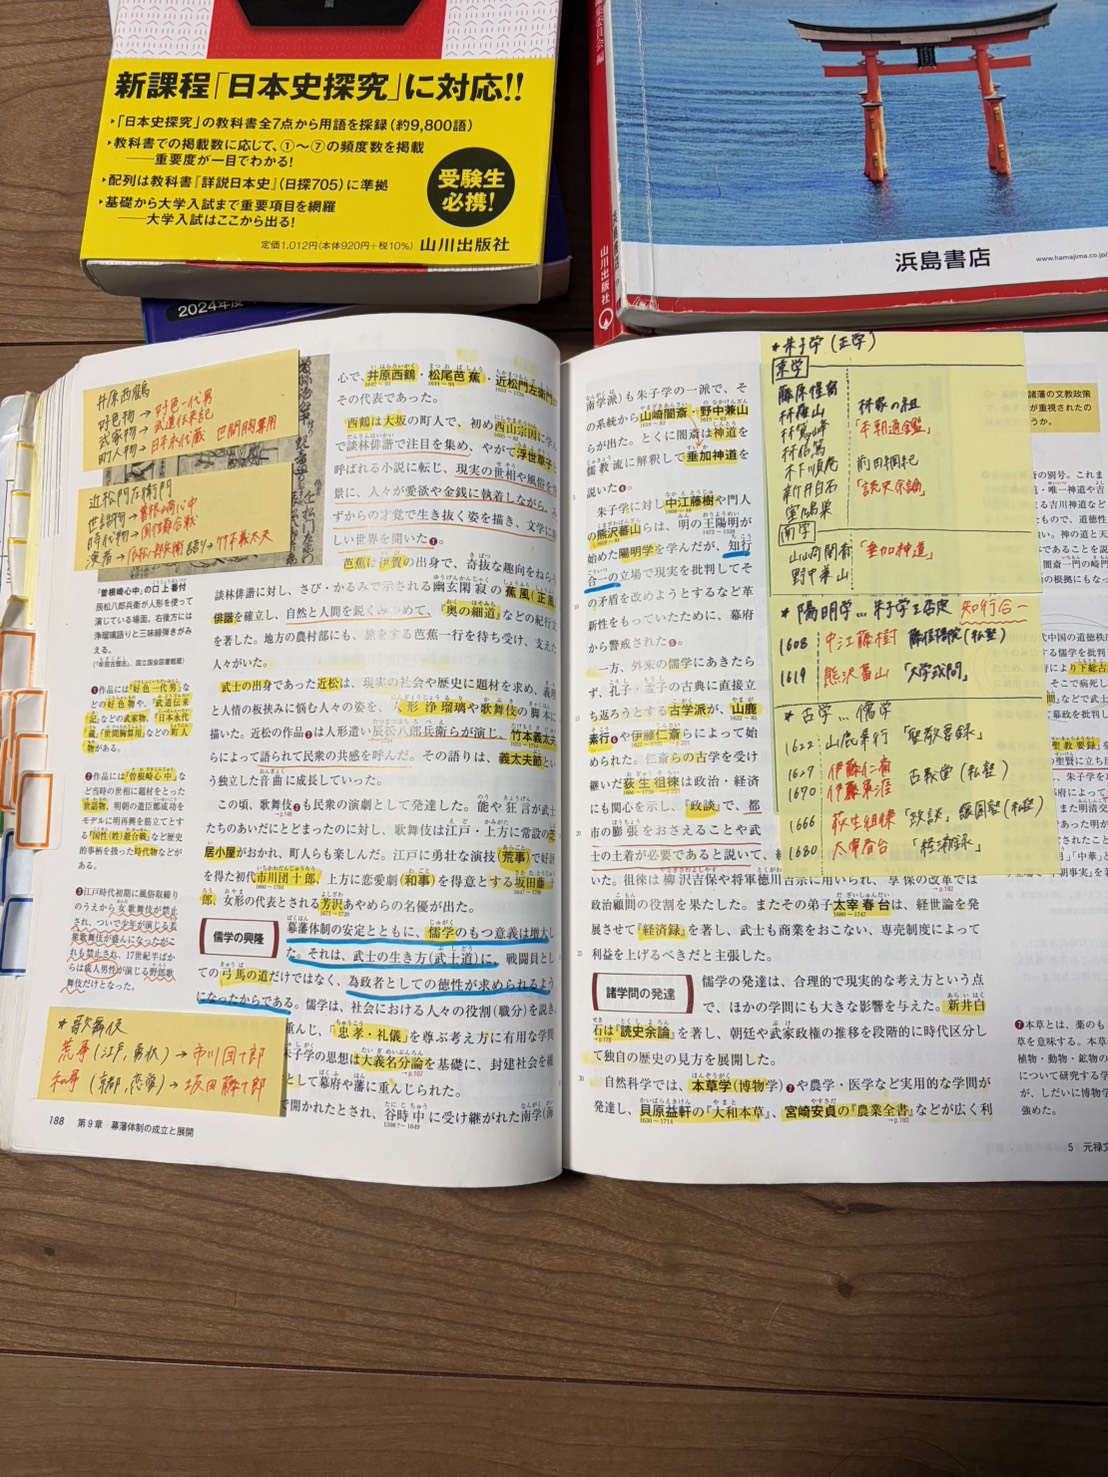 新課程「日本史探究」に対応!!
・「日本史探究」の教科書全7点から用語を採録(約9,800語)
・教科書での掲載数に応じて、①〜⑦の頻度数を掲載
──重要度が一目でわかる!
・配列は教科書『詳説日本史』(日探705)に準拠
・基礎から大学入試まで重要項目を網羅
──大学入試はここから出る!
受験生
必携!
定価1,012円(本体920円+税10%) 山川出版社
2024年度
山川出版社
浜島書店
www.hamajima.co.jp/
井原西鶴
好色物→好色一代男
武家物→武道伝来記
町人物→日本永代蔵 世間胸算用
近松門左衛門
世話物→曽根崎心中
時代物→国性爺合戦
演者→辰松八郎兵衛 語り→竹本義太夫
『曽根崎心中』の口上番付
辰松八郎兵衛が人形を使って
演じている場面。右後方には
浄瑠璃語りと三味線弾きがみ
える。
❶作品には『好色一代男』な
どの好色物や、『武道伝来
記』などの武家物、『日本永代
蔵』『世間胸算用』などの町人
物がある。
❷作品には『曽根崎心中』な
ど当時の世相に題材をとった
世話物、明朝の遺臣鄭成功を
モデルに明再興を筋立てとす
る『国性(姓)爺合戦』など歴史
的事柄を扱った時代物などが
ある。
❸江戸時代初期に風俗取締り
のうえから女歌舞伎が禁止
され、ついで少年が演じる若
衆歌舞伎が盛んになったがこ
れも禁止され、17世紀半ばか
らは成人男性が演じる野郎歌
舞伎だけとなった。
*歌舞伎
荒事(江戸、勇壮)→市川団十郎
和事(京都、恋愛)→坂田藤十郎
心で、井原西鶴・松尾芭蕉・近松門左衛門の
その代表であった。
西鶴は大坂の町人で、初め西山宗因に学ん
で談林俳諧で注目を集め、やがて浮世草子と
呼ばれる小説に転じ、現実の世相や風俗を背
景に、人々が愛欲や金銭に執着しながら、み
ずからの才覚で生き抜く姿を描き、文学に新
しい世界を開いた❶。
芭蕉は伊賀の出身で、奇抜な趣向をねらう
談林俳諧に対し、さび・かるみで示される幽玄閑寂の蕉風(正風)
俳諧を確立し、自然と人間を鋭くみつめて、『奥の細道』などの紀行文
を著した。地方の農村部にも、旅をする芭蕉一行を待ち受け、支えた
人々がいた。
武士の出身であった近松は、現実の社会や歴史に題材を求め、義理
と人情の板挟みに悩む人々の姿を、人形浄瑠璃や歌舞伎の脚本に
描いた。近松の作品❷は人形遣い辰松八郎兵衛らが演じ、竹本義太夫
らによって語られて民衆の共感を呼んだ。その語りは、義太夫節とい
う独立した音曲に成長していった。
この頃、歌舞伎❸も民衆の演劇として発達した。能や狂言が武士
たちのあいだにとどまったのに対し、歌舞伎は江戸・上方に常設の芝
居小屋がおかれ、町人らも楽しんだ。江戸に勇壮な演技(荒事)で好評
を得た初代市川団十郎、上方に恋愛劇(和事)を得意とする坂田藤十
郎、女形の代表とされる芳沢あやめらの名優が出た。
儒学の興隆
幕藩体制の安定とともに、儒学のもつ意義は増大し
た。それは、武士の生き方(武士道)に、戦闘員とし
ての弓馬の道だけではなく、為政者としての徳性が求められるよう
になったからである。儒学は、社会における人々の役割(職分)を説き、
重んじ、「忠孝・礼儀」を尊ぶ考え方に有用な学問
朱子学の思想は大義名分論を基礎に、封建社会を維
として幕府や藩に重んじられた。
で開かれたとされ、谷時中に受け継がれた南学(海
188 第9章 幕藩体制の成立と展開
南学派)も朱子学の一派で、そ
の系統から山崎闇斎・野中兼山
らが出た。とくに闇斎は神道を
儒教流に解釈して垂加神道を
説いた❹。
朱子学に対し、中江藤樹や門人
の熊沢蕃山らは、明の王陽明が
始めた陽明学を学んだが、知行
合一の立場で現実を批判してそ
の矛盾を改めようとするなど革
新性をもっていたために、幕府
から警戒された❺。
一方、外来の儒学にあきたら
ず、孔子・孟子の古典に直接立
ち返ろうとする古学派が、山鹿
素行❻や伊藤仁斎らによって始
められた。仁斎らの古学を受け
継いだ荻生徂徠は政治・経済
にも関心を示し、『政談』で、都
市の膨張をおさえることや武
士の土着が必要であると説いて、
いた。徂徠は柳沢吉保や将軍徳川吉宗に用いられ、享保の改革では
政治顧問の役割を果たした。またその弟子太宰春台は、経世論を発
展させて『経済録』を著し、武士も商業をおこない、専売制度によって
利益を上げるべきだと主張した。
諸学問の発達
儒学の発達は、合理的で現実的な考え方という点
で、ほかの学問にも大きな影響を与えた。新井白
石は『読史余論』を著し、朝廷や武家政権の推移を段階的に時代区分し
て独自の歴史の見方を展開した。
自然科学では、本草学(博物学)❼や農学・医学など実用的な学問が
発達し、貝原益軒の『大和本草』、宮崎安貞の『農業全書』などが広く利
*朱子学(正学)
京学
藤原惺窩
林羅山 林家の祖
林鵞峰 「本朝通鑑」
林信篤
木下順庵 前田綱紀
新井白石 「読史余論」
室鳩巣
南学
山崎闇斎 「垂加神道」
野中兼山
*陽明学…朱子学を否定 知行合一
1608 中江藤樹 藤樹書院(私塾)
1619 熊沢蕃山 「大学或問」
*古学…儒学
1622 山鹿素行 「聖教要録」
1627 伊藤仁斎 古義堂(私塾)
1670 伊藤東涯
1666 荻生徂徠 「政談」 蘐園塾(私塾)
1680 太宰春台 「経済録」
❼本草とは、薬のも
を意味する。本草
植物・動物・鉱物の
について研究する学
が、しだいに博物学
強めた。
5 元禄文